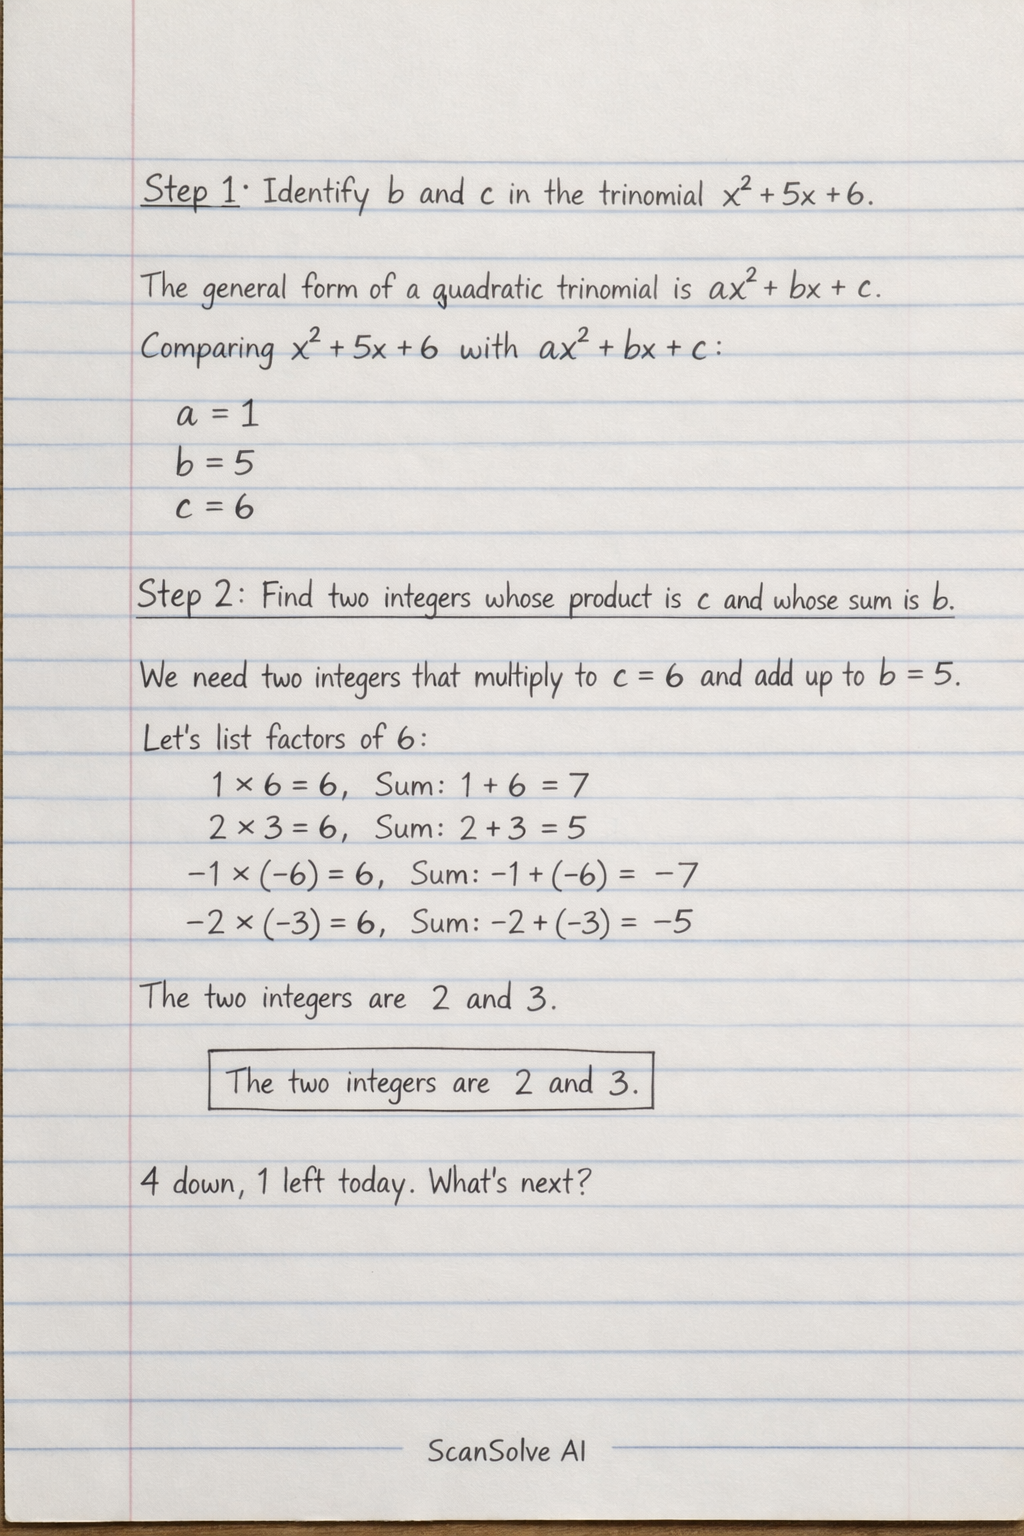 Step 1· Identify b and c in the trinomial x² + 5x + 6.
The general form of a quadratic trinomial is ax² + bx + c.
Comparing x² + 5x + 6 with ax² + bx + c:
a = 1
b = 5
c = 6
Step 2: Find two integers whose product is c and whose sum is b.
We need two integers that multiply to c = 6 and add up to b = 5.
Let's list factors of 6:
1 × 6 = 6, Sum: 1 + 6 = 7
2 × 3 = 6, Sum: 2 + 3 = 5
−1 × (−6) = 6, Sum: −1 + (−6) = −7
−2 × (−3) = 6, Sum: −2 + (−3) = −5
The two integers are 2 and 3.
The two integers are 2 and 3.
4 down, 1 left today. What's next?
ScanSolve AI